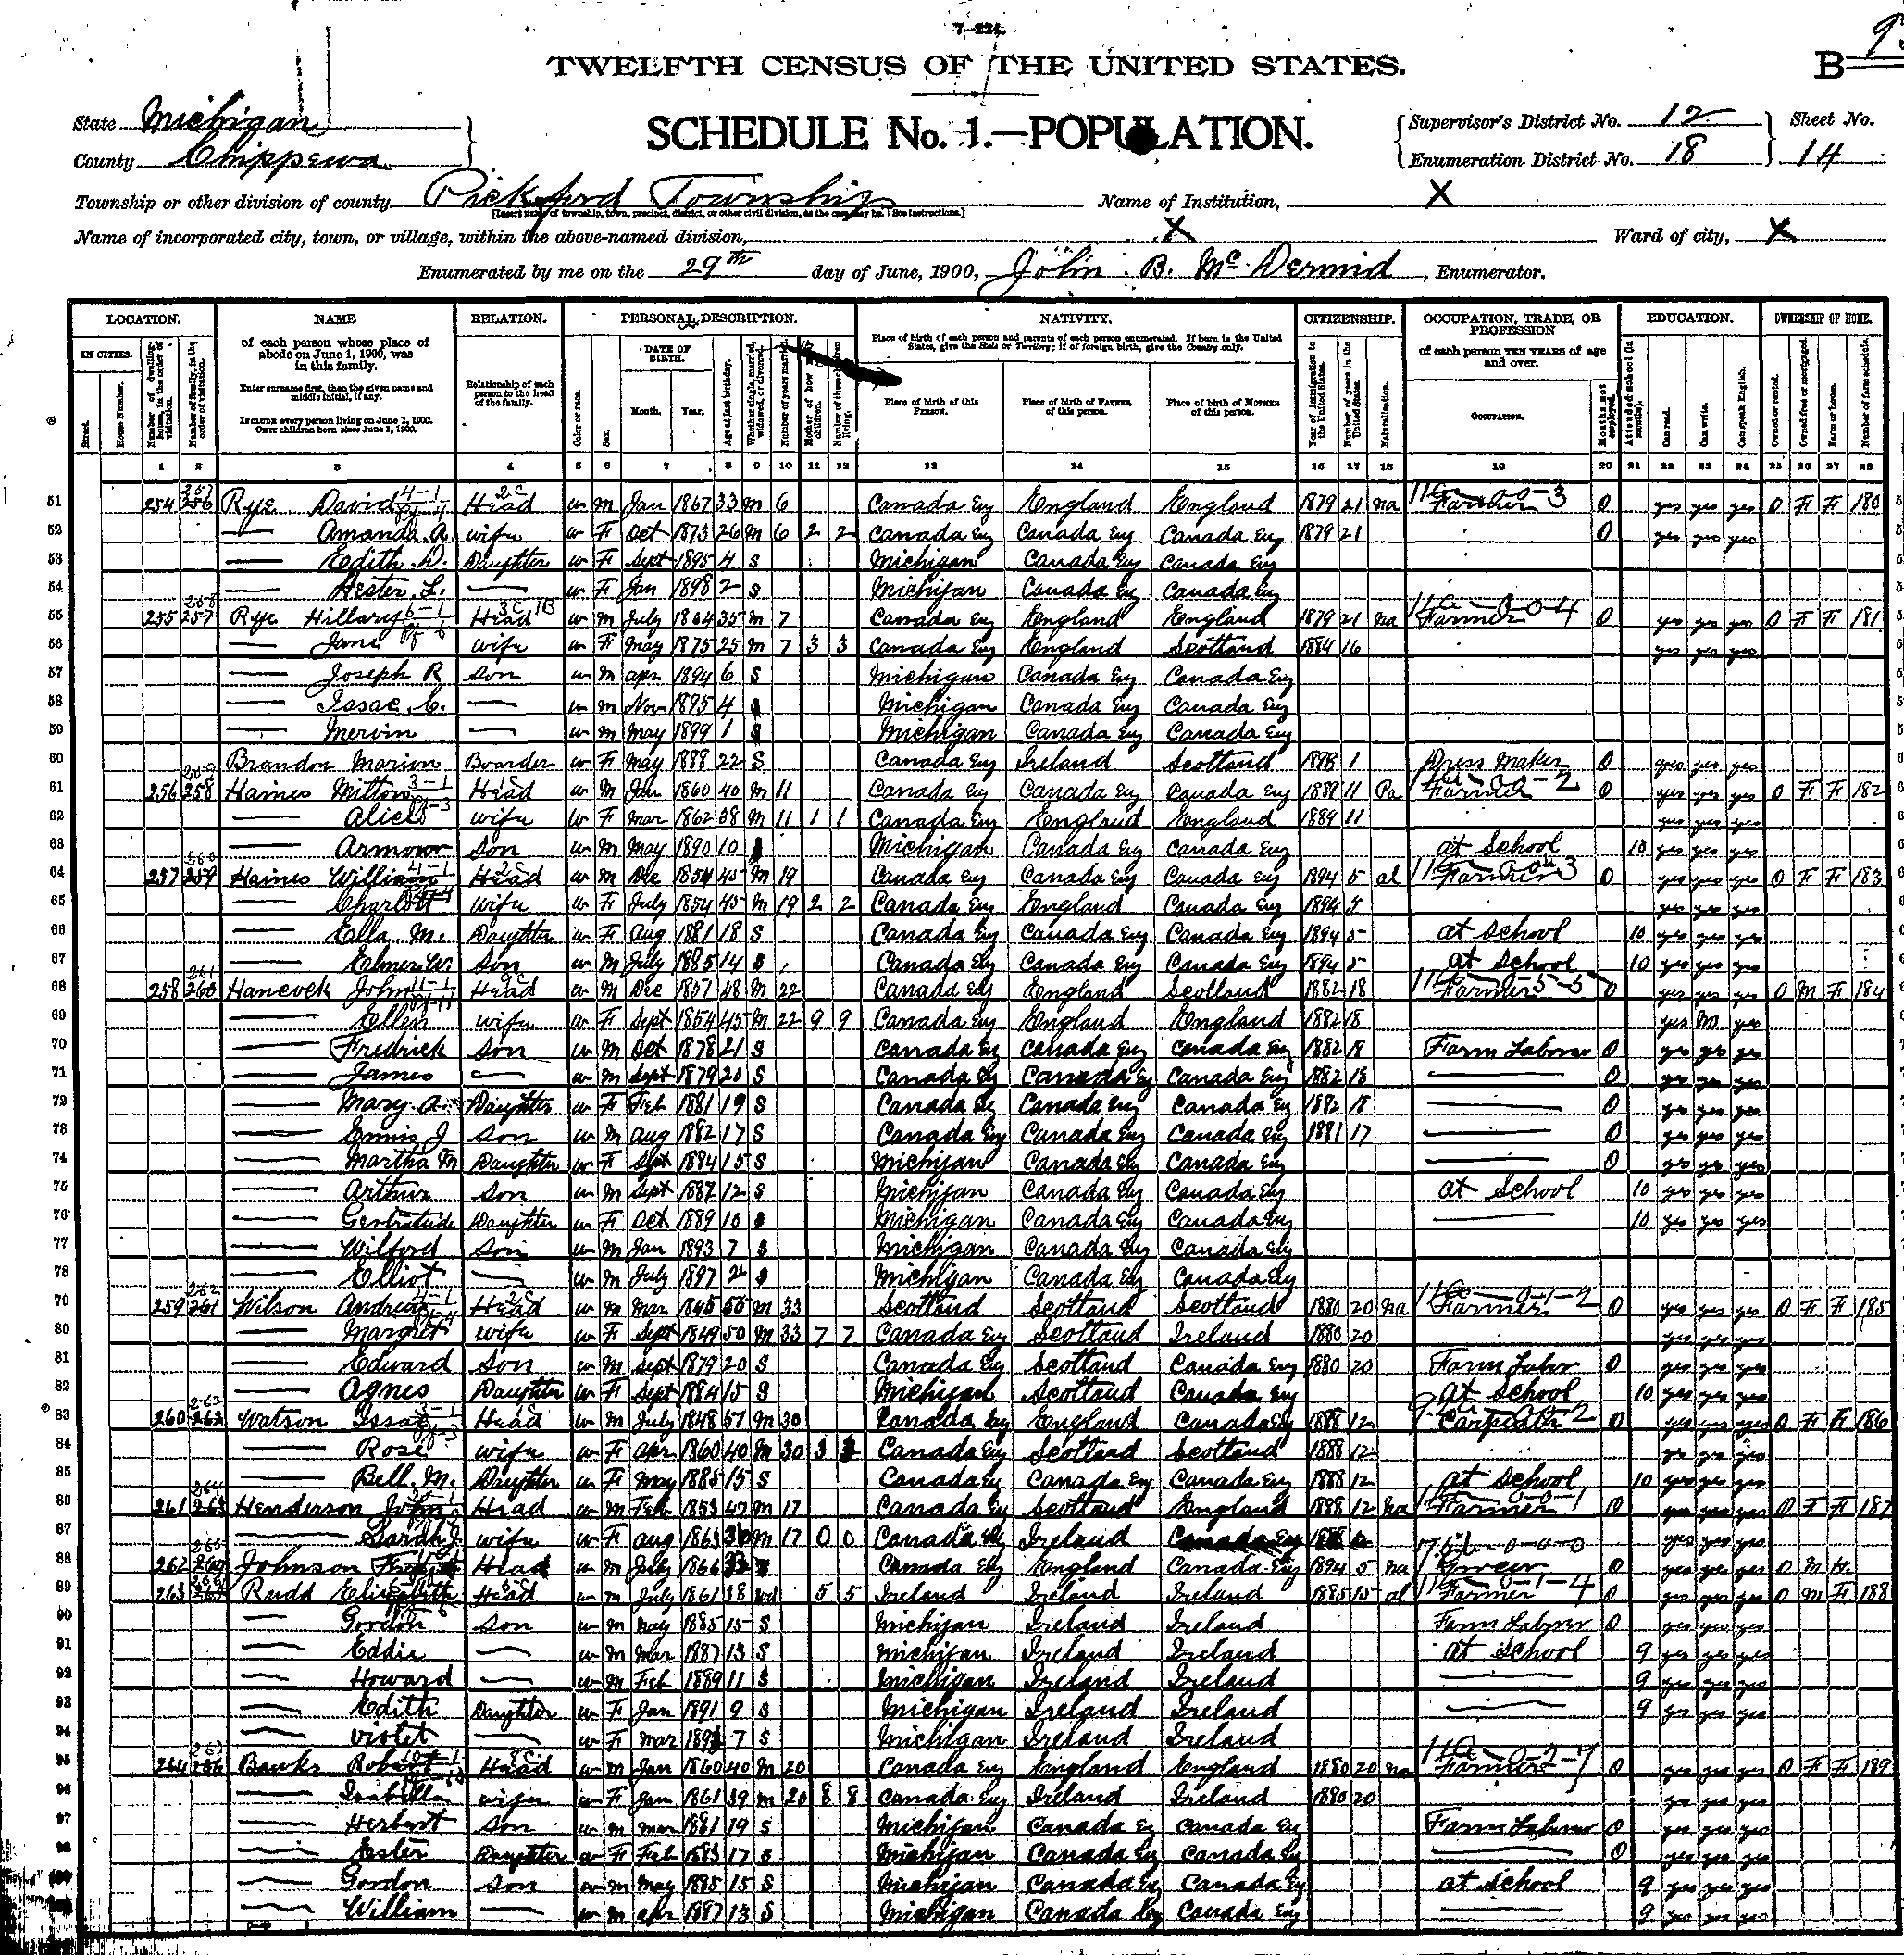 7-224.
TWELFTH CENSUS OF THE UNITED STATES.
B
State Michigan
County Chippewa
SCHEDULE No. 1.—POPULATION.
Supervisor's District No. 12
Enumeration District No. 18
Sheet No. 14
Township or other division of county Pickford Township
[Insert name of township, town, precinct, district, or other civil division, as the case may be. See instructions.]
Name of Institution, X
Name of incorporated city, town, or village, within the above-named division, X
Ward of city, X
Enumerated by me on the 29th day of June, 1900, John B. McDermid, Enumerator.
LOCATION. NAME RELATION. PERSONAL DESCRIPTION. NATIVITY. CITIZENSHIP. OCCUPATION, TRADE, OR PROFESSION EDUCATION. OWNERSHIP OF HOME.
IN CITIES. Street. House Number. Number of dwelling-house, in the order of visitation. Number of family, in the order of visitation.
of each person whose place of abode on June 1, 1900, was in this family.
Enter surname first, then the given name and middle initial, if any.
INCLUDE every person living on June 1, 1900. OMIT children born since June 1, 1900.
Relationship of each person to the head of the family.
Color or race. Sex. DATE OF BIRTH. Month. Year. Age at last birthday. Whether single, married, widowed, or divorced. Number of years married. Mother of how many children. Number of these children living.
Place of birth of each person and parents of each person enumerated. If born in the United States, give the State or Territory; if of foreign birth, give the Country only.
Place of birth of this PERSON. Place of birth of FATHER of this person. Place of birth of MOTHER of this person.
Year of immigration to the United States. Number of years in the United States. Naturalization.
of each person TEN YEARS of age and over.
OCCUPATION. Months not employed.
Attended school (in months). Can read. Can write. Can speak English.
Owned or rented. Owned free or mortgaged. Farm or house. Number of farm schedule.
1 2 3 4 5 6 7 8 9 10 11 12 13 14 15 16 17 18 19 20 21 22 23 24 25 26 27 28
51 254 256 Rye David Head w M Jan 1867 33 M 6 Canada Eng England England 1879 21 na Farmer 0 yes yes yes O F F 180
52 — Amanda A. wife w F Oct 1873 26 M 6 2 2 Canada Eng Canada Eng Canada Eng 1879 21 0 yes yes yes
53 — Edith D. Daughter w F Sept 1895 4 S Michigan Canada Eng Canada Eng
54 — Hester L. — w F Jan 1898 2 S Michigan Canada Eng Canada Eng
55 255 257 Rye Hillary Head w M July 1864 35 M 7 Canada Eng England England 1879 21 na Farmer 0 yes yes yes O F F 181
56 — Jane wife w F May 1875 25 M 7 3 3 Canada Eng England Scotland 1884 16 yes yes yes
57 — Joseph R son w M apr 1894 6 S Michigan Canada Eng Canada Eng
58 — Issac C. — w M Nov 1895 4 Michigan Canada Eng Canada Eng
59 — Mervin — w M May 1899 1 S Michigan Canada Eng Canada Eng
60 Brandon Marion Boarder w F May 22 S Canada Eng Ireland Scotland 1 Dress Maker 0 yes yes yes
61 256 258 Haines Milton Head w M Jan 1860 40 M 11 Canada Eng Canada Eng Canada Eng 1889 11 Pa Farmer 0 yes yes yes O F F 182
62 — Alice wife w F Mar 1862 38 M 11 1 1 Canada Eng England England 1889 11 yes yes yes
63 — Armour son w M May 1890 10 Michigan Canada Eng Canada Eng at School 10 yes yes yes
64 257 259 Haines William Head w M Dec 1854 45 M 19 Canada Eng Canada Eng Canada Eng 1894 5 al Farmer 0 yes yes yes O F F 183
65 — Charlott wife w F July 1854 45 M 19 2 2 Canada Eng England Canada Eng 1894 5 yes yes yes
66 — Ella M. Daughter w F Aug 1881 18 S Canada Eng Canada Eng Canada Eng 1894 5 at School 10 yes yes yes
67 — Elmer W. Son w M July 1885 14 S Canada Eng Canada Eng Canada Eng 1894 5 at School 10 yes yes yes
68 258 260 Hancock John Head w M Dec M 22 Canada Eng England Scotland 1882 18 Farmer 0 yes yes yes O M F 184
69 — Ellen wife w F Sept 1854 45 M 22 9 9 Canada Eng England England 1882 18 yes no yes
70 — Fredrick son w M Oct 1878 21 S Canada Eng Canada Eng Canada Eng 1882 18 Farm Laborer 0 yes yes yes
71 — James — w M Sept 1879 20 S Canada Eng Canada Eng Canada Eng 1882 18 — 0 yes yes yes
72 — Mary A. Daughter w F Feb 1881 19 S Canada Eng Canada Eng Canada Eng 1882 18 — 0 yes yes yes
73 — J son w M Aug 1882 17 S Canada Eng Canada Eng Canada Eng 17 — 0 yes yes yes
74 — Martha M Daughter w F Sept 1884 15 S Michigan Canada Eng Canada Eng — 0 yes yes yes
75 — Arthur son w M Sept 1887 12 S Michigan Canada Eng Canada Eng at School 10 yes yes yes
76 — Daughter w F Oct 1889 10 Michigan Canada Eng Canada Eng — 10 yes yes yes
77 — Wilford son w M Jan 1893 7 S Michigan Canada Eng Canada Eng
78 — Elliot — w M July 1897 2 Michigan Canada Eng Canada Eng
79 259 261 Wilson Andrew Head w M Mar 1845 55 M 33 Scotland Scotland Scotland 1880 20 na Farmer 0 yes yes yes O F F 185
80 — Margret wife w F Sept 1849 50 M 33 7 7 Canada Eng Scotland Ireland 1880 20 yes yes yes
81 — Edward Son w M Sept 1879 20 S Canada Eng Scotland Canada Eng 1880 20 Farm Labor 0 yes yes yes
82 — Agnes Daughter w F Sept 1884 15 S Michigan Scotland Canada Eng at School 10 yes yes yes
83 260 262 Watson Issac Head w M July 1848 51 M 30 Canada Eng England Canada Eng 1888 12 Carpenter 0 yes yes yes O F F 186
84 — Rose wife w F apr 1860 40 M 30 3 Canada Eng Scotland Scotland 1888 12 yes yes yes
85 — Bell M. Daughter w F May 1885 15 S Canada Eng Canada Eng Canada Eng 1888 12 at School 10 yes yes yes
86 261 263 Henderson John Head w M Feb 1853 47 M 17 Canada Eng Scotland England 1888 12 na Farmer 0 yes yes yes O F F 187
87 — Sarah J. wife w F Aug 1863 M 17 0 0 Canada Eng Ireland Canada Eng yes yes yes
88 262 Johnson Head w M July 1866 Canada Eng England Canada Eng 1894 5 na 0 yes yes yes O M H
89 263 Rudd Elizabeth Head w M July 1861 38 wd 5 5 Ireland Ireland Ireland 1885 15 al Farmer 0 yes yes yes O M F 188
90 — Gordon son w M May 1885 15 S Michigan Ireland Ireland Farm Laborer 0 yes yes yes
91 — Eddie — w M Mar 1887 13 S Michigan Ireland Ireland at School 9 yes yes yes
92 — Howard — w M Feb 1889 11 S Michigan Ireland Ireland — 9 yes yes yes
93 — Edith Daughter w F Jan 1891 9 S Michigan Ireland Ireland — 9 yes yes yes
94 — Violet — w F Mar 7 S Michigan Ireland Ireland
95 264 Banks Robert Head w M Jan 1860 40 M 20 Canada Eng England England 1880 20 na Farmer 0 yes yes yes O F F 189
96 — Isabella wife w F Jan 1861 39 M 20 8 8 Canada Eng Ireland Ireland 1880 20 yes yes yes
97 — Herbert son w M Mar 1881 19 S Michigan Canada Eng Canada Eng Farm Laborer 0 yes yes yes
98 — Ester Daughter w F Feb 1883 17 S Michigan Canada Eng Canada Eng 0 yes yes yes
— Gordon son w M May 1885 15 S Michigan Canada Eng Canada Eng at School 9 yes yes yes
— William — w M apr 1887 13 S Michigan Canada Eng Canada Eng — 9 yes yes yes